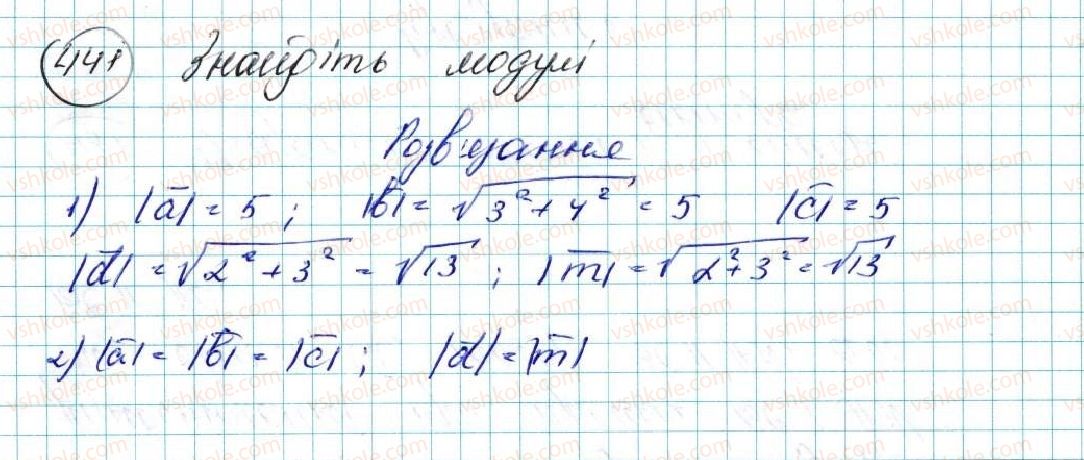 441 Знайдіть модулі
Розв'язання
1) |a̅| = 5 ; |b̅| = √(3² + 4²) = 5 |c̅| = 5
|d̅| = √(2² + 3²) = √13 ; |m̅| = √(2² + 3²) = √13
2) |a̅| = |b̅| = |c̅| ; |d̅| = |m̅|